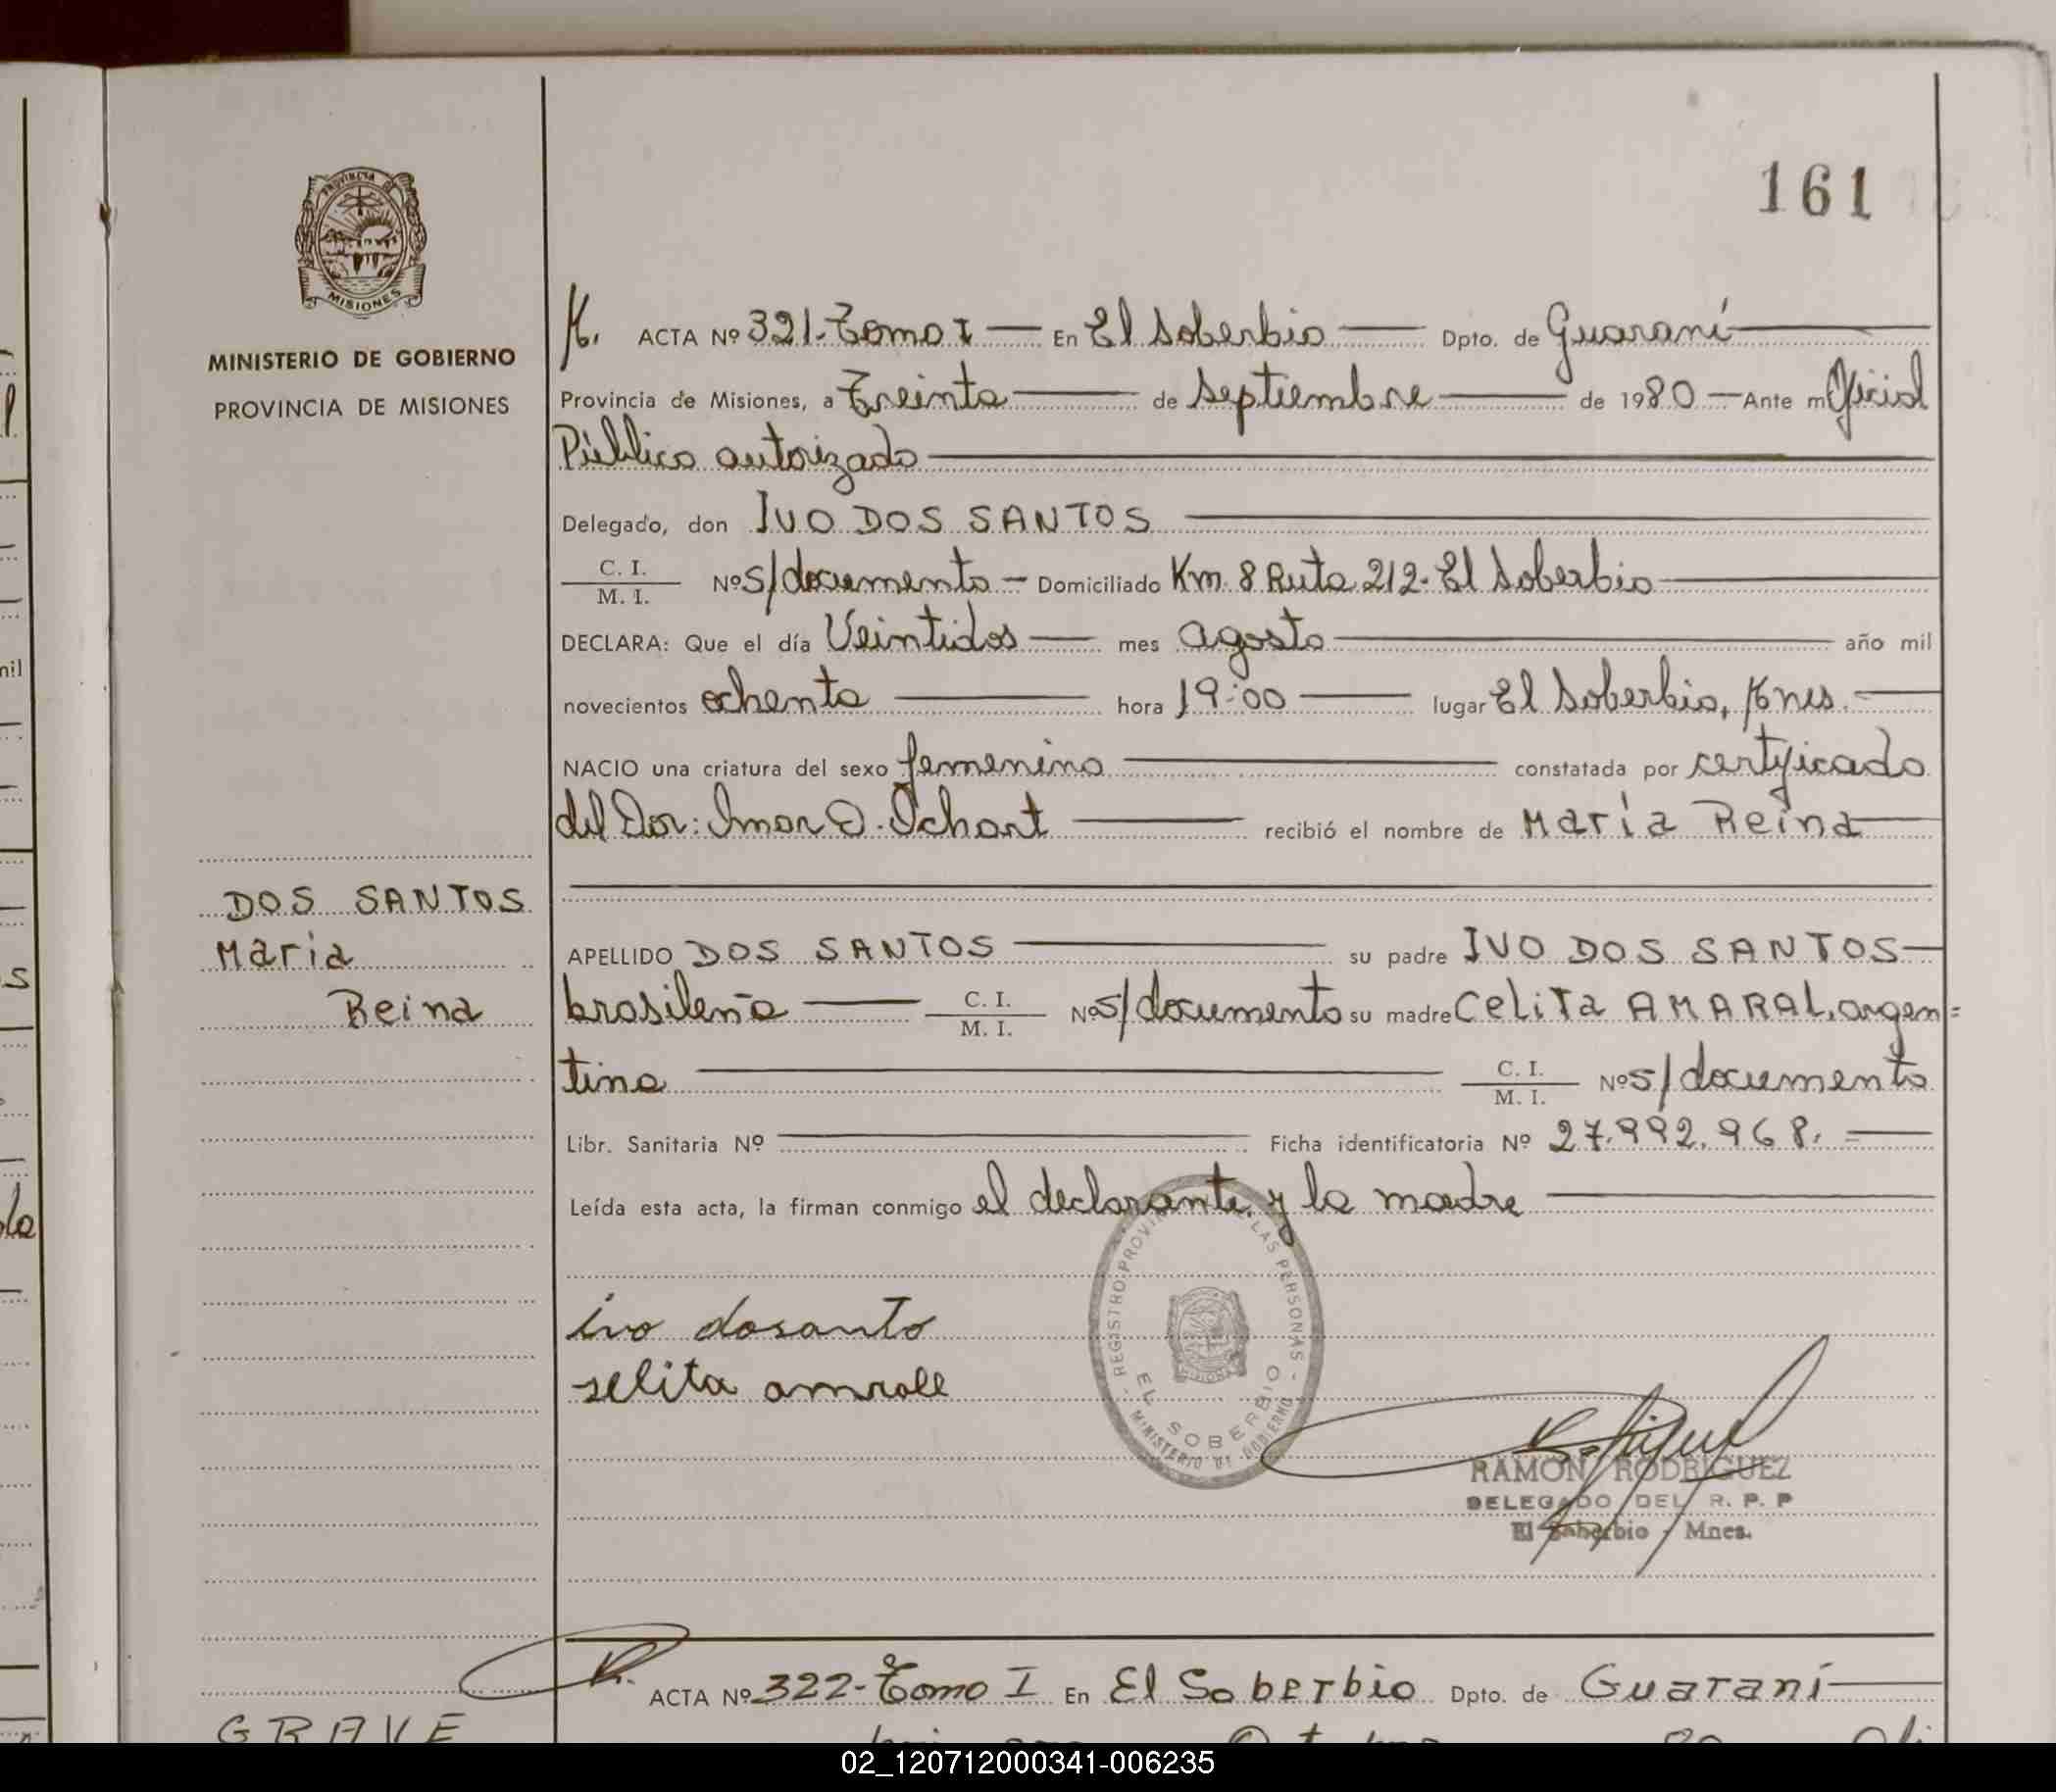 PROVINCIA DE
MISIONES
MINISTERIO DE GOBIERNO
PROVINCIA DE MISIONES
161
ACTA Nº 321-Tomo I — En El Soberbio — Dpto. de Guaraní
Provincia de Misiones, a Treinta — de Septiembre — de 1980 — Ante mí Oficial
Público autorizado
Delegado, don IVO DOS SANTOS
C. I. / M. I. Nº S/documento — Domiciliado Km. 8 Ruta 212-El Soberbio
DECLARA: Que el día Veintidos — mes Agosto — año mil
novecientos ochenta — hora 19:00 — lugar El Soberbio, Mnes.
NACIO una criatura del sexo femenino — constatada por certificado
del Dor: Imar O. Ichart — recibió el nombre de María Reina
DOS SANTOS
Maria
Reina
APELLIDO DOS SANTOS — su padre IVO DOS SANTOS
brasileño — C. I. / M. I. Nº S/documento su madre Celita AMARAL, argen=
tina — C. I. / M. I. Nº S/documento
Libr. Sanitaria Nº — Ficha identificatoria Nº 27.992.968. =
Leída esta acta, la firman conmigo el declarante y la madre
ivo dosanto
selita amrall
REGISTRO PROVIN LAS PERSONAS
EL SOBERBIO
MINISTERIO DE GOBIERNO
RAMON RODRIGUEZ
DELEGADO DEL R. P. P
El Soberbio - Mnes.
ACTA Nº 322-Tomo I En El Soberbio Dpto. de Guaraní
GRAVE
02_120712000341-006235